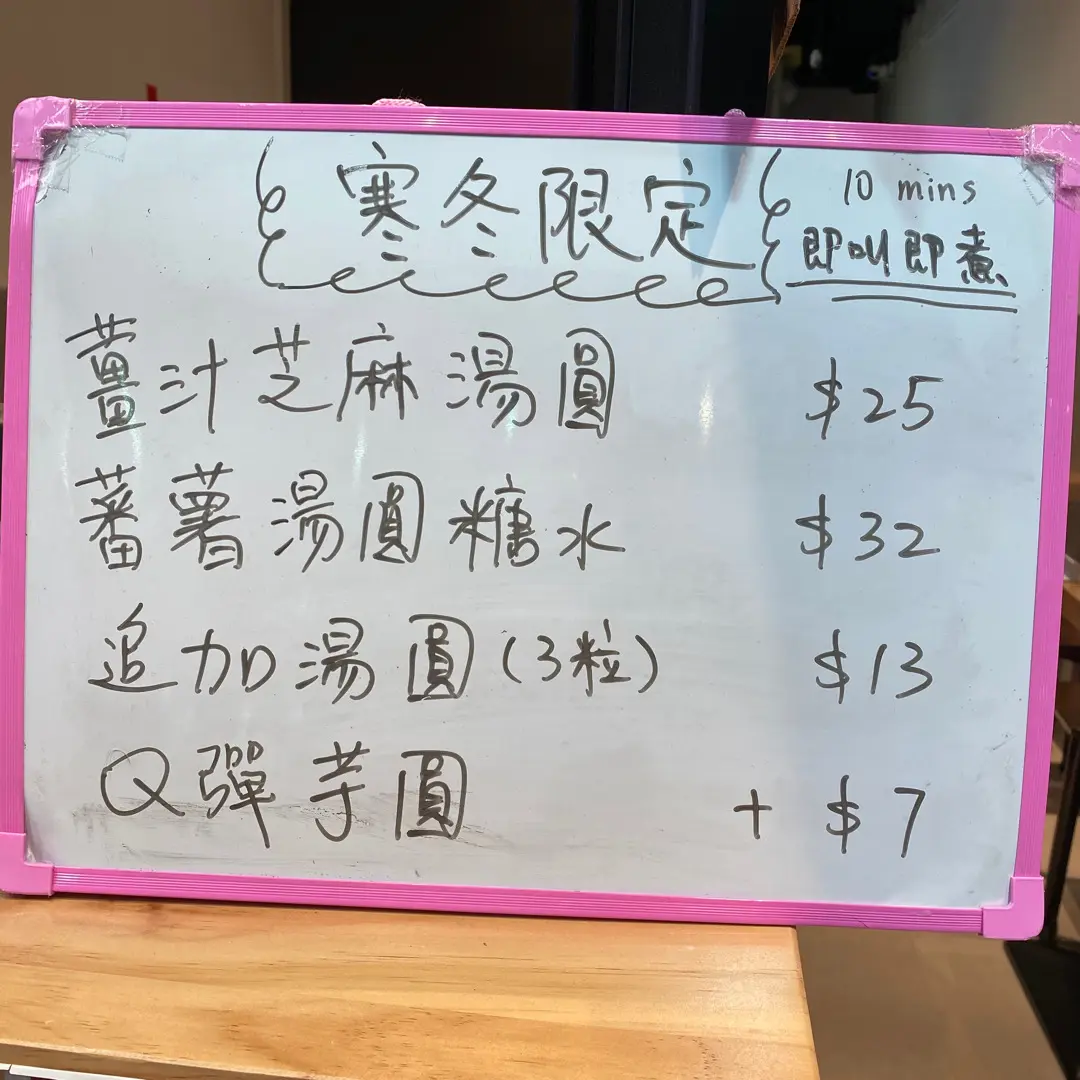 寒冬限定
10 mins
即叫即煮
薑汁芝麻湯圓 $25
蕃薯湯圓糖水 $32
追加湯圓(3粒) $13
Q彈芋圓 + $7